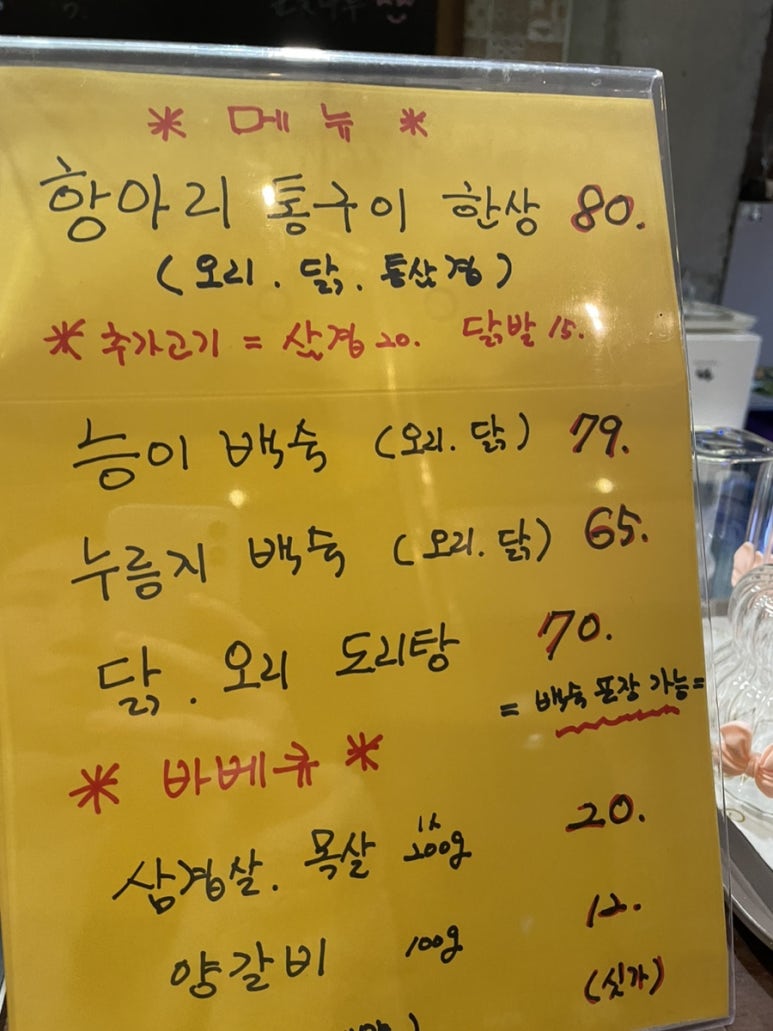 * 메뉴 *
항아리 통구이 한상 80.
(오리. 닭. 통삼겹)
* 추가고기 = 삼겹 20. 닭발 15.
능이 백숙 (오리. 닭) 79.
누릉지 백숙 (오리. 닭) 65.
닭. 오리 도리탕 70.
= 백숙 포장 가능 =
* 바베큐 *
삼겹살. 목살 200g 20.
양갈비 100g 12.
(싯가)